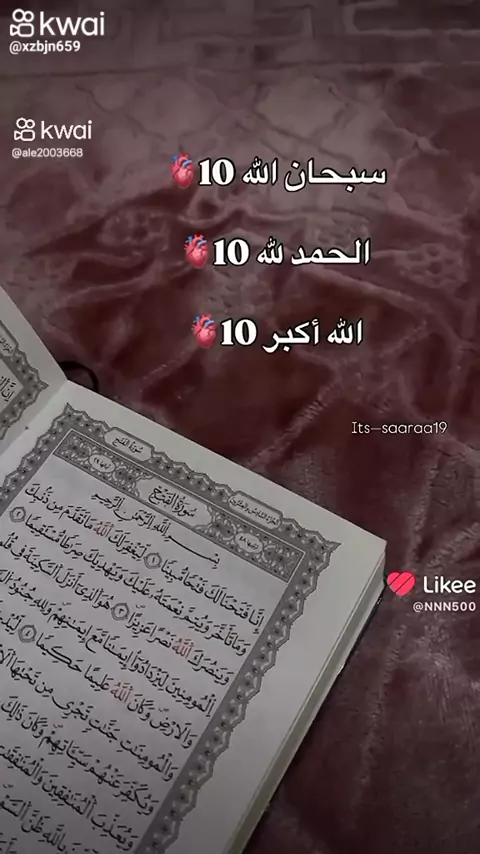 kwai
@xzbjn659
kwai
@ale2003668
سبحان الله 10🫀
الحمد لله 10🫀
الله أكبر 10🫀
Its—saaraa19
Likee
@NNN500
سورة الفتح
سورة الفتح
بسم الله الرحمن الرحيم
إنا فتحنا لك فتحا مبينا ١ ليغفر لك الله ما تقدم من ذنبك
وما تأخر ويتم نعمته عليك ويهديك صراطا مستقيما ٢
وينصرك الله نصرا عزيزا ٣ هو الذي أنزل السكينة في قلو
المؤمنين ليزدادوا إيمنا مع إيمنهم ولله جنود ال
والأرض وكان الله عليما حكيما ٤ ليد
والمؤمنت جنت تجري من تحتها الأ
ويكفر عنهم سيئاتهم وكان ذلك
ويعذب المنفقين والمنفقت
بالله ظن السو